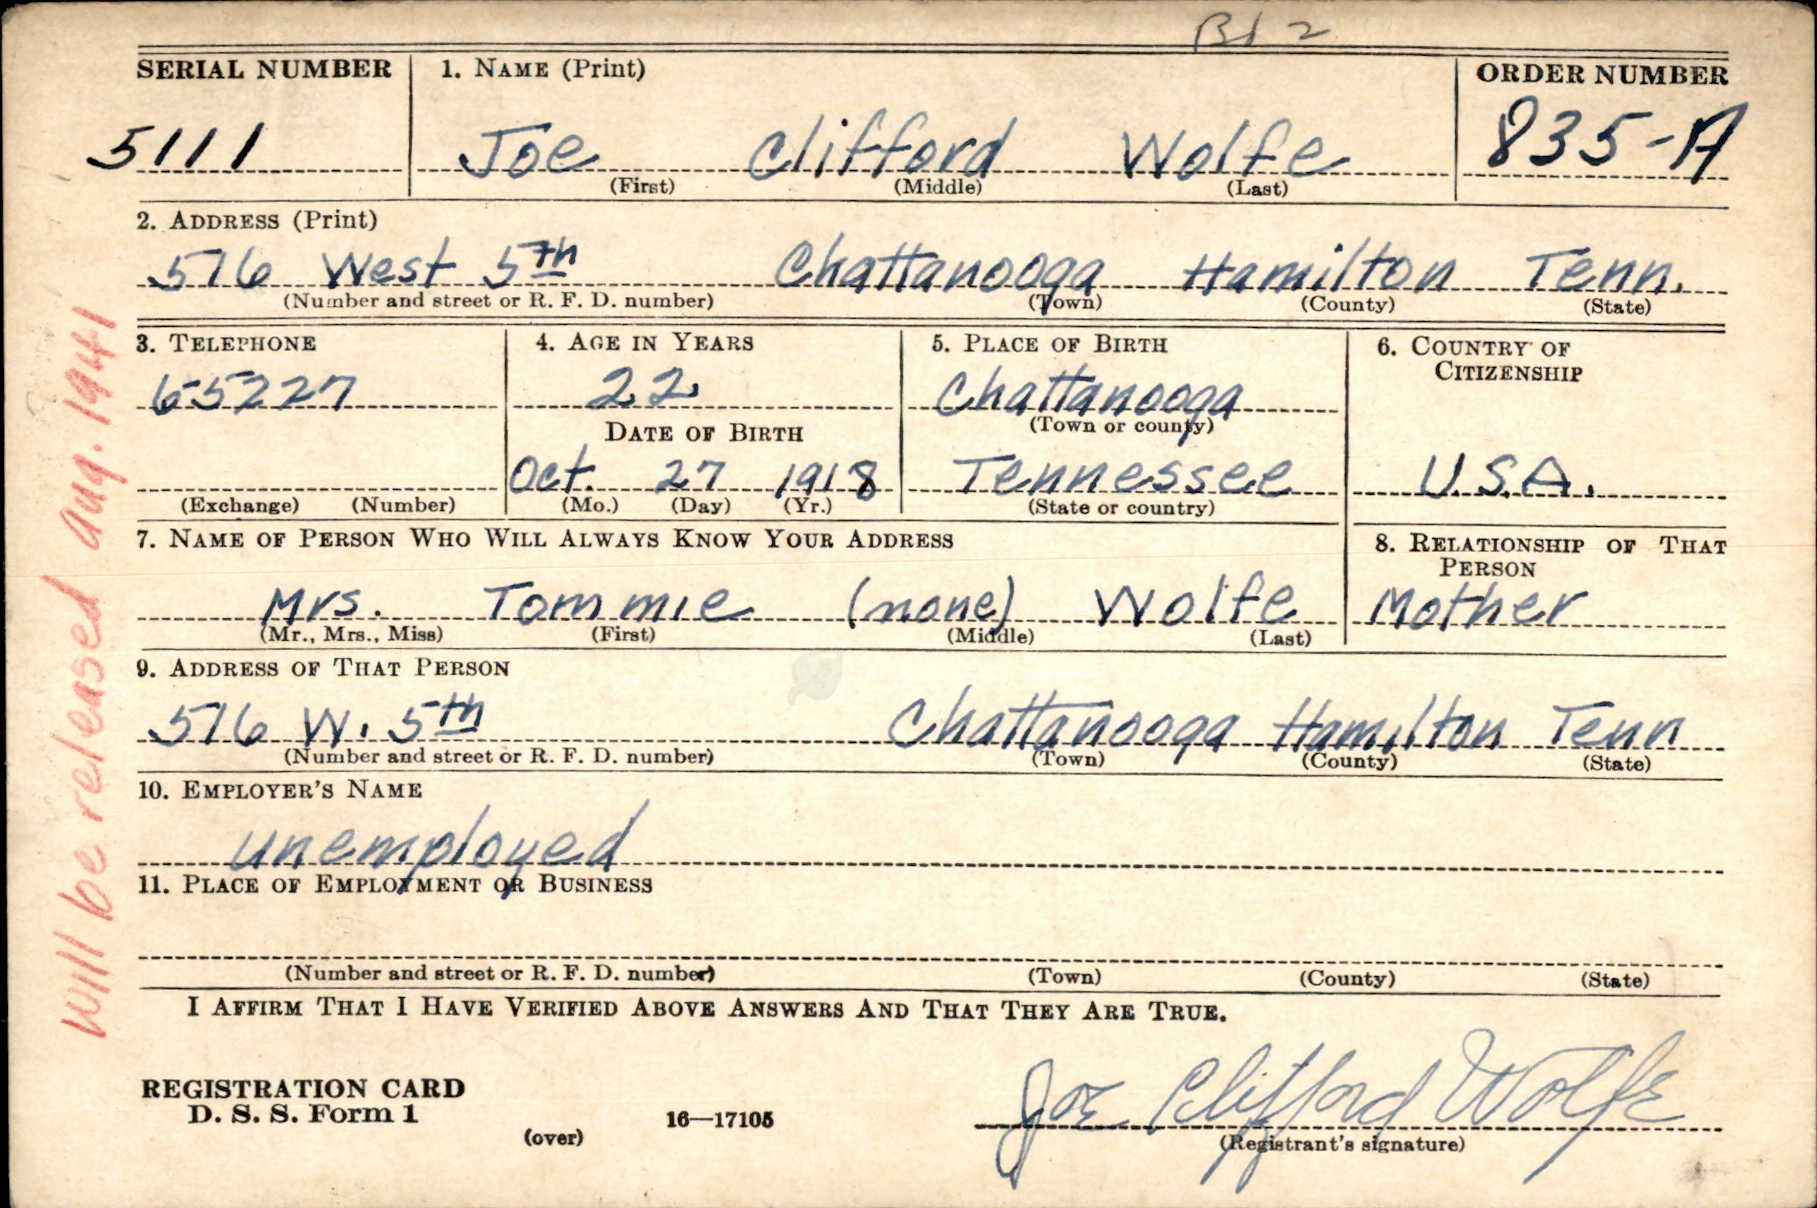 Bd 2
SERIAL NUMBER 1. NAME (Print) ORDER NUMBER
5111 Joe Clifford Wolfe 835-A
(First) (Middle) (Last)
2. ADDRESS (Print)
516 West 5th Chattanooga Hamilton Tenn.
(Number and street or R. F. D. number) (Town) (County) (State)
3. TELEPHONE 4. AGE IN YEARS 5. PLACE OF BIRTH 6. COUNTRY OF
CITIZENSHIP
65227 22 Chattanooga
DATE OF BIRTH (Town or county)
Oct. 27 1918 Tennessee U.S.A.
(Exchange) (Number) (Mo.) (Day) (Yr.) (State or country)
7. NAME OF PERSON WHO WILL ALWAYS KNOW YOUR ADDRESS 8. RELATIONSHIP OF THAT
PERSON
Mrs. Tommie (none) Wolfe Mother
(Mr., Mrs., Miss) (First) (Middle) (Last)
9. ADDRESS OF THAT PERSON
516 W. 5th Chattanooga Hamilton Tenn
(Number and street or R. F. D. number) (Town) (County) (State)
10. EMPLOYER'S NAME
unemployed
11. PLACE OF EMPLOYMENT OR BUSINESS
(Number and street or R. F. D. number) (Town) (County) (State)
I AFFIRM THAT I HAVE VERIFIED ABOVE ANSWERS AND THAT THEY ARE TRUE.
REGISTRATION CARD
D. S. S. Form 1 16—17105 Joe Clifford Wolfe
(over) (Registrant's signature)
Will be released Aug. 1941